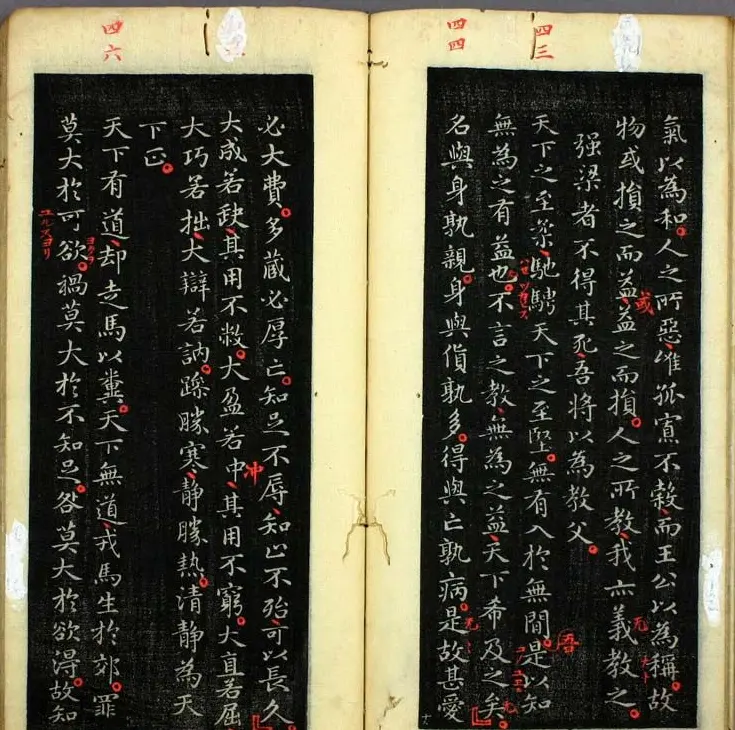 四三
四四
氣以為和人之所惡唯孤寡不穀而王公以為稱故
物或損之而益益之而損人之所教我亦義教之
或
强梁者不得其死吾將以為教父
天下之至柔馳騁天下之至堅無有入於無間是以知
吾
無為之有益也不言之教無為之益天下希及之矣
名與身孰親身與貨孰多得與亡孰病是故甚愛
四六
必大費多蔵必厚亡知足不辱知止不殆可以長久
大成若缺其用不敝大盈若中其用不窮大直若屈
冲
大巧若拙大辯若訥躁勝寒静勝熱清静為天
下正
天下有道却走馬以糞天下無道戎馬生於郊罪
莫大於可欲禍莫大於不知足咎莫大於欲淂故知